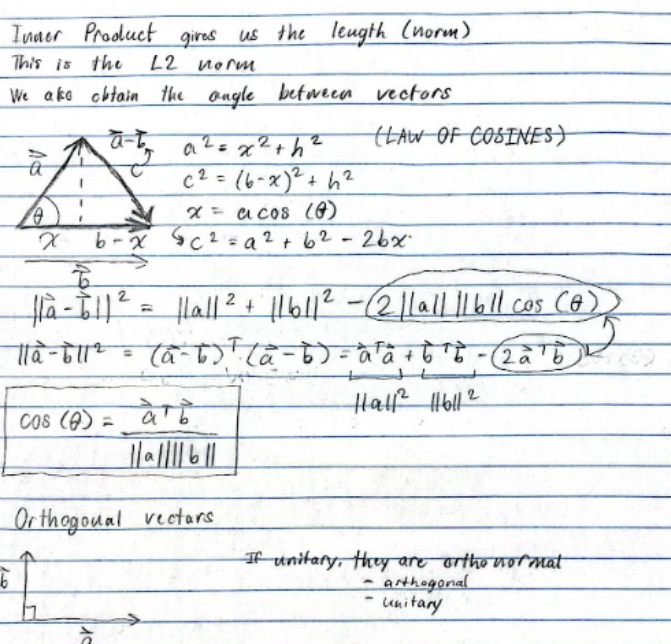 Inner Product gives us the length (norm)
This is the L2 norm
We also obtain the angle between vectors
(LAW OF COSINES)
a⃗ a⃗-b⃗ c θ x b-x b⃗
a² = x² + h²
c² = (b-x)² + h²
x = a cos (θ)
c² = a² + b² - 2bx
||a⃗-b⃗||² = ||a||² + ||b||² - 2||a|| ||b|| cos (θ)
||a⃗-b⃗||² = (a⃗-b⃗)ᵀ·(a⃗-b⃗) = a⃗ᵀa⃗ + b⃗ᵀb⃗ - 2a⃗ᵀb⃗
||a||² ||b||²
cos (θ) = a⃗ᵀb⃗ / ||a|| ||b||
Orthogonal vectors
b⃗ a⃗
If unitary, they are orthonormal
- orthogonal
- unitary